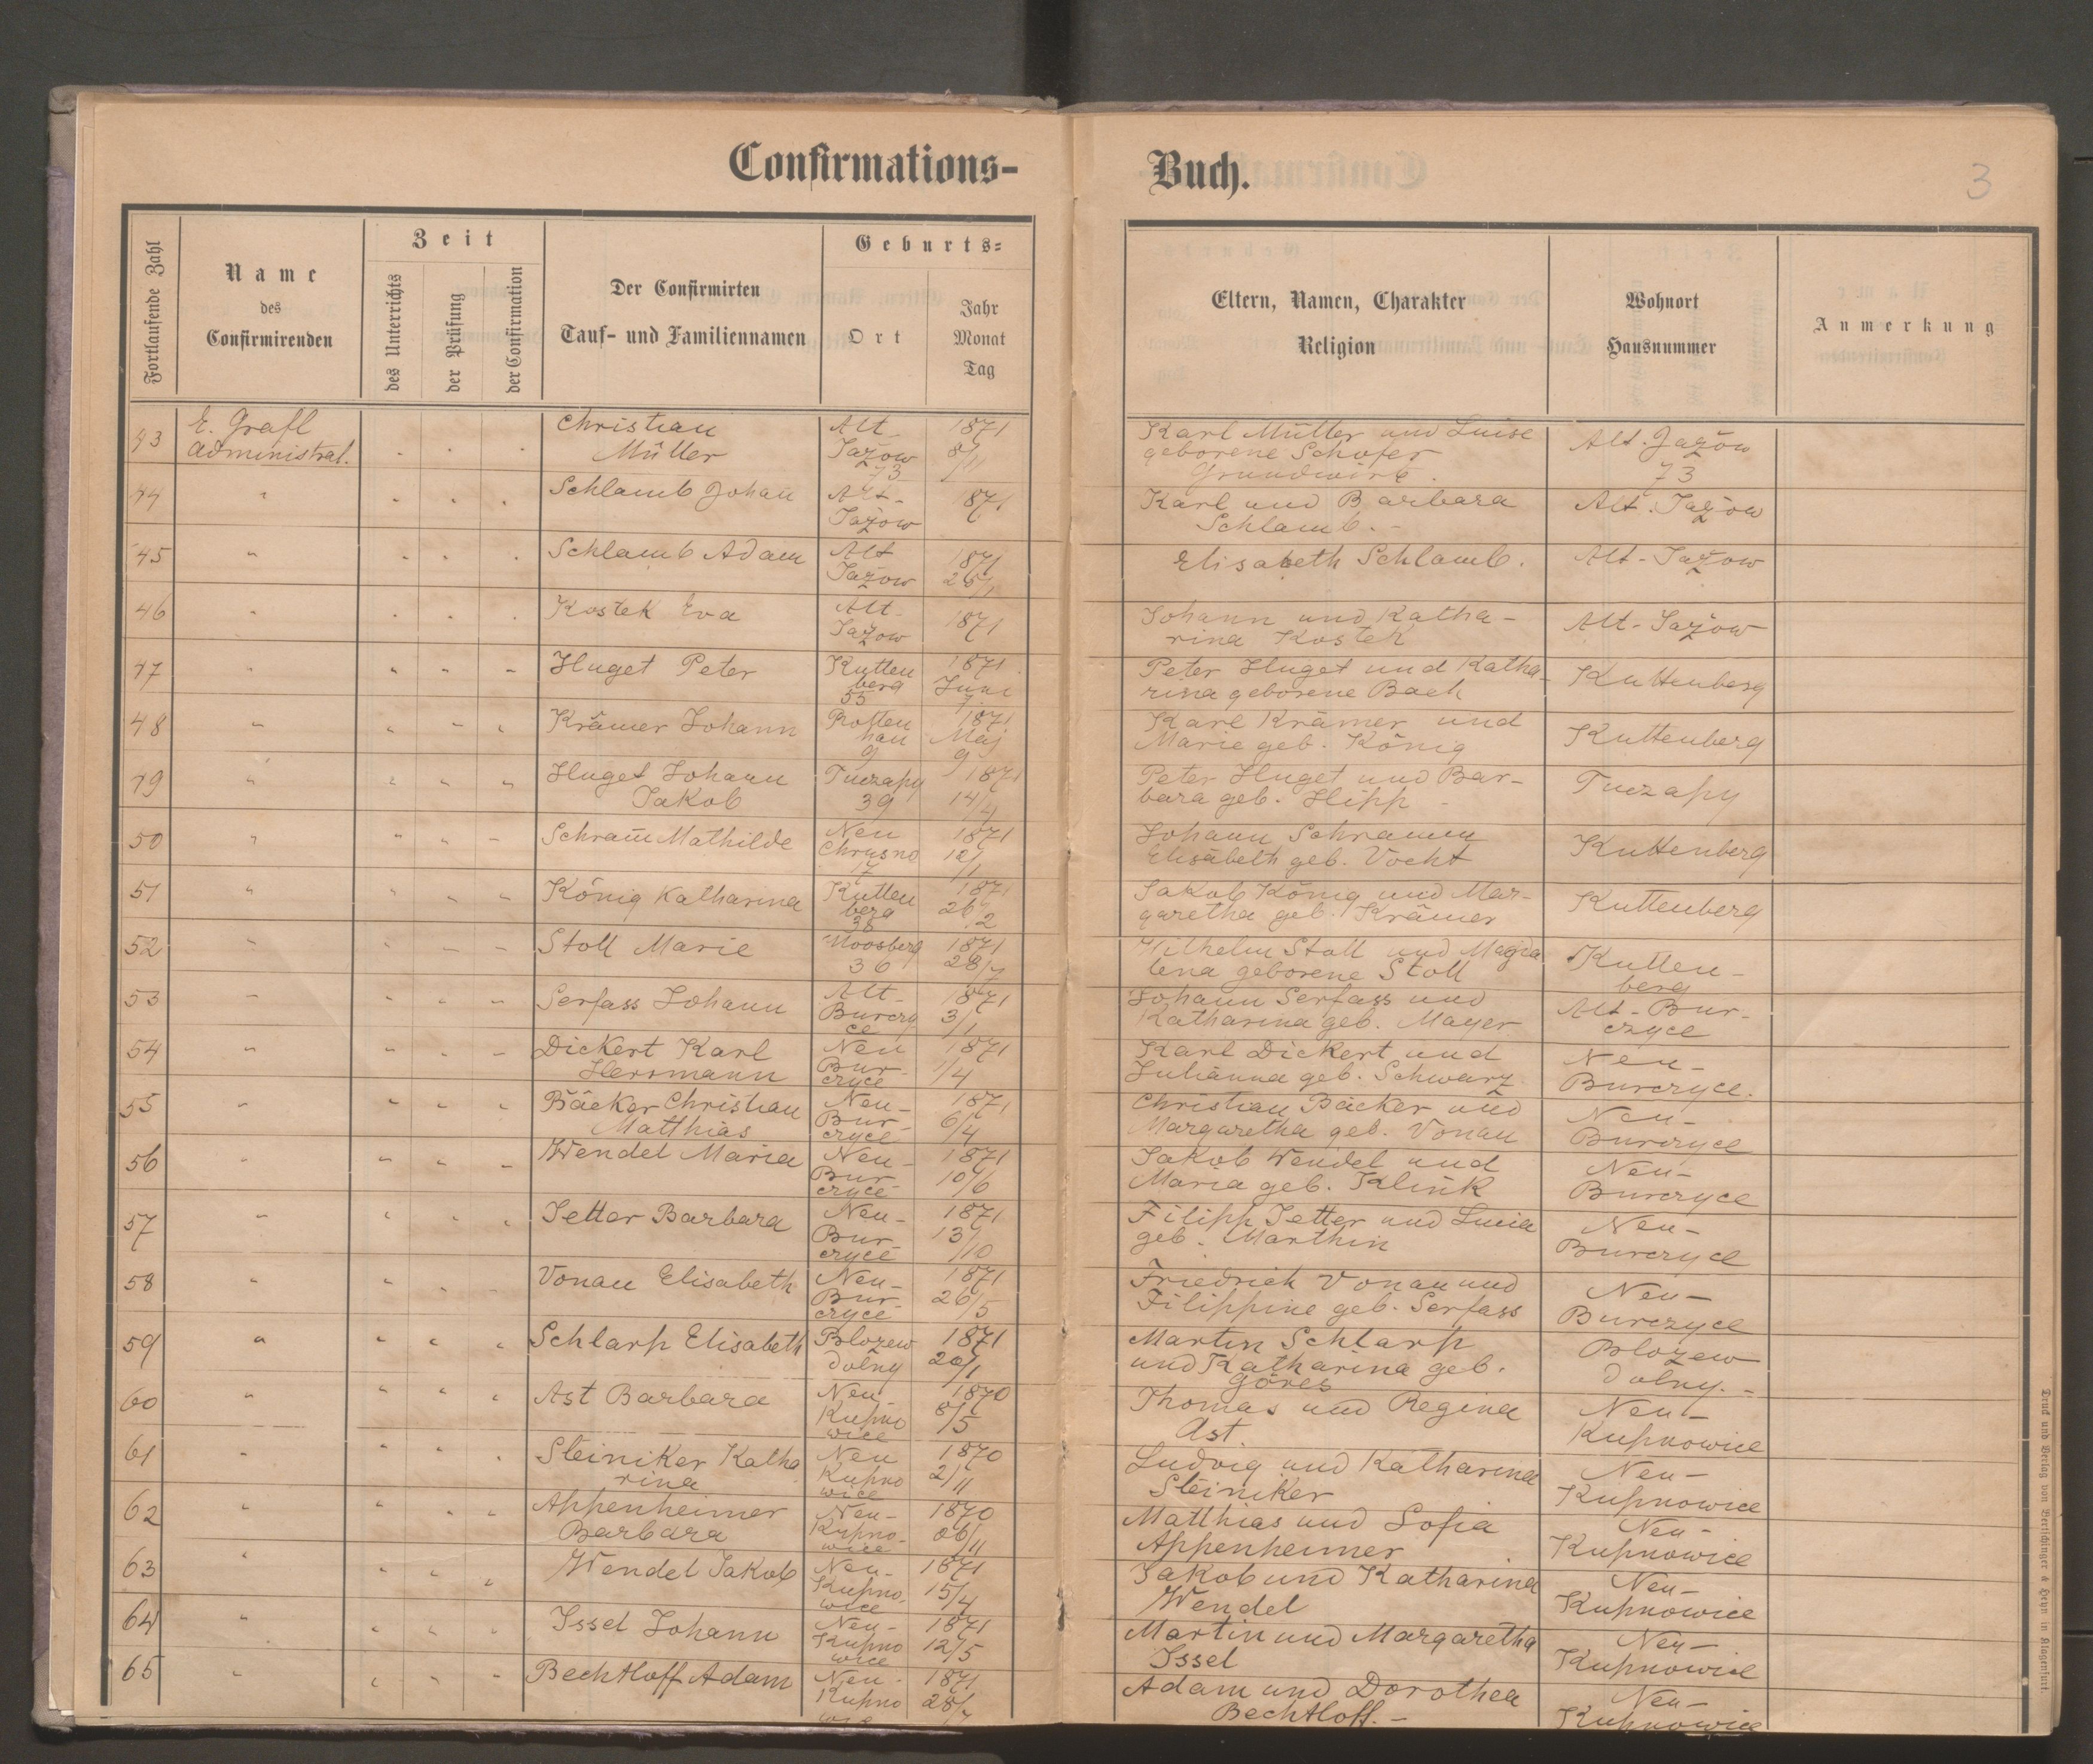 Confirmations-
Buch.
3
Fortlaufende Zahl
Name
des
Confirmirenden
Zeit
des Unterrichts
der Prüfung
der Confirmation
Der Confirmirten
Tauf- und Familiennamen
Geburts-
Ort
Jahr
Monat
Tag
Eltern, Namen, Charakter
Religion
Wohnort
Hausnummer
Anmerkung
43 E. Grafl Christian Alt 1871 Karl Müller und Luise Alt. Jazow
Administrat. Müller Jazow geborene Schofer 73
73 Grundwirt.
44 " Schlamb Johan Alt- 1871 Karl und Barbara Alt. Jazow
Jazow Schlamb. -
45 " Schlamb Adam Alt 1871 Elisabeth Schlamb. Alt-Jazow
Jazow
46 " Kostek Eva Alt- 1871 Johann und Katha- Alt-Jazow
Jazow rina Kostek
47 " Huget Peter Kutten 1871 Peter Huget und Katha- Kuttenberg
berg Juni rina geborene Bach
55
48 " Krämer Johann Rotten 1871 Karl Krämer und Kuttenberg
han Maj Marie geb. König
9 9
49 " Huget Johann Tuczapy 1871 Peter Huget und Bar- Tuczapy
Jakob 39 14/4 bara geb. Hipp -
50 " Schram̄ Mathilde Neu 1871 Johann Schramm Kuttenberg
Chrusno Elisabeth geb. Vocht
17
51 " König Katharina Kutten 1871 Jakob König und Mar- Kuttenberg
berg 26 garetha geb. Krämer
38 .2
52 " Stoll Marie Moosberg 1871 Wilhelm Stoll und Magda Kutten-
36 28/7 lena geborene Stoll berg
53 " Serfass Johann Alt- 1871 Johann Serfass und Alt-Bur-
Burczy 3/1 Katharina geb. Mayer czyce
ce
54 " Dickert Karl Neu 1871 Karl Dickert und Neu-
Herrmann Bur- 1/4 Julianna geb. Schwarz Burczyce.
czyce
55 " Bäcker Christian Neu- 1871 Christian Bäcker und Neu-
Matthias Bur- 6/4 Margaretha geb. Vonau Burczyce
czyce
56 " Wendel Maria Neu- 1871 Jakob Wendel und Neu-
Bur- 10/6 Maria geb. Klink Burczyce
czyce
57 " Jetter Barbara Neu- 1871 Filipp Jetter und Lucia Neu-
Bur- 13/10 geb. Marthin Burczyce
czyce
58 " Vonau Elisabeth Neu- 1871 Friedrich Vonau und Neu-
Bur- 26/5 Filippine geb. Serfass Burczyce
czyce
59 " Schlarp Elisabeth Blozew 1871 Martin Schlarp Blozew
dolny 20/1 und Katharina geb. dolny. -
Göres
60 " Ast Barbara Neu- 1870 Thomas und Regina Neu-
Kupno 8/5 Ast. Kupnowice
wice
61 " Steiniker Katha Neu 1870 Ludvig und Katharina Neu-
rina Kupno 2/11 Steiniker Kupnowice
wice
62 " Appenheimer Neu- 1870 Matthias und Sofia Neu-
Barbara Kupno- 06/11 Appenheimer Kupnowice
wice
63 " Wendel Jakob Neu- 1871 Jakob und Katharina Neu-
Kupno- 15/4 Wendel Kupnowice
wice
64 " Issel Johann Neu- 1871 Martin und Margaretha Neu-
Kupno 12/5 Issel Kupnowice
wice
65 " Bechtloff Adam Neu- 1871 Adam und Dorothea Neu-
Kupno 28/7 Bechtloff. - Kupnowice
Druck und Verlag von Bertschinger & Heyn in Klagenfurt.